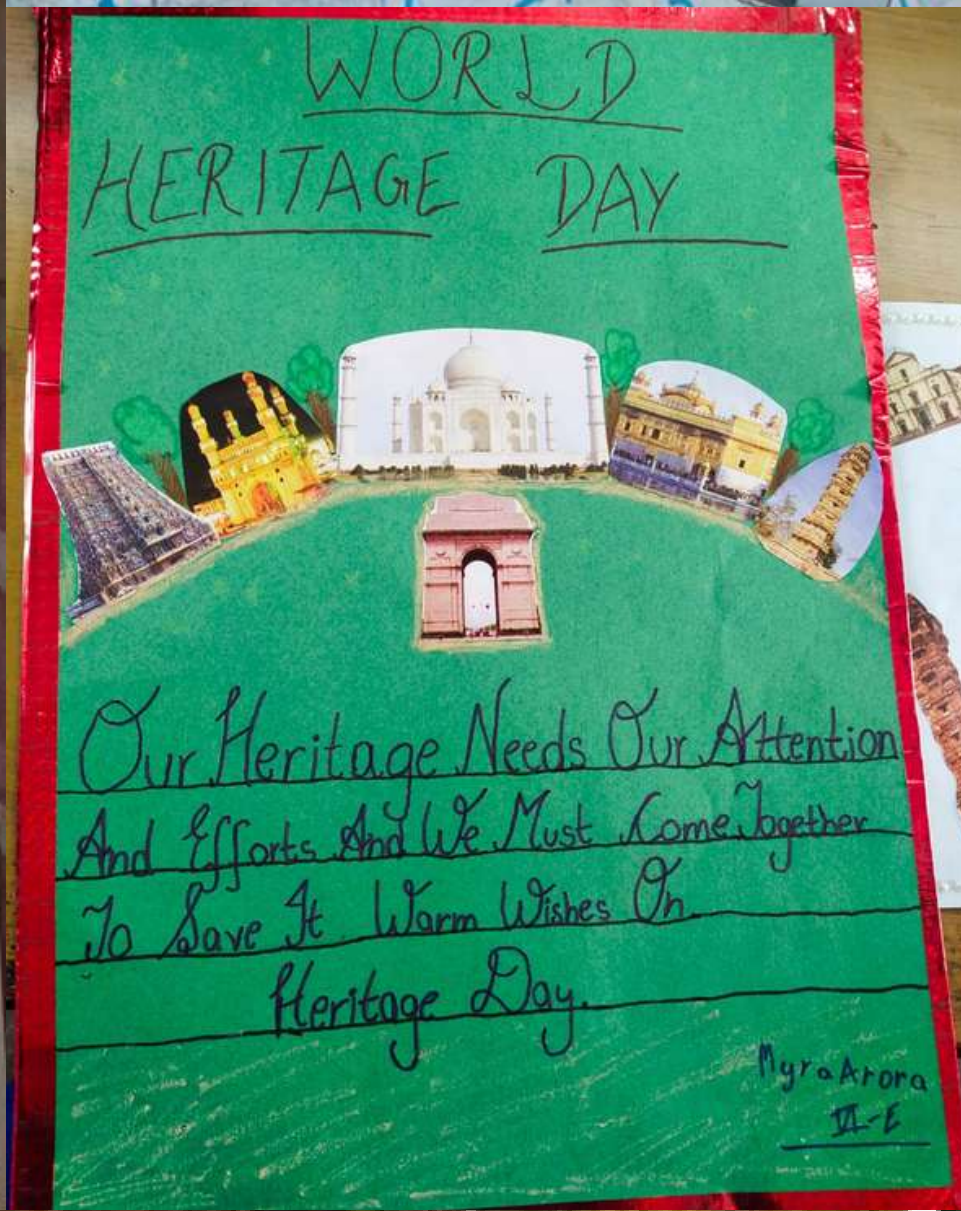 WORLD
HERITAGE DAY
Our Heritage Needs Our Attention
And Efforts And We Must Come Together
To Save It Warm Wishes On.
Heritage Day.
Myra Arora
VI-E